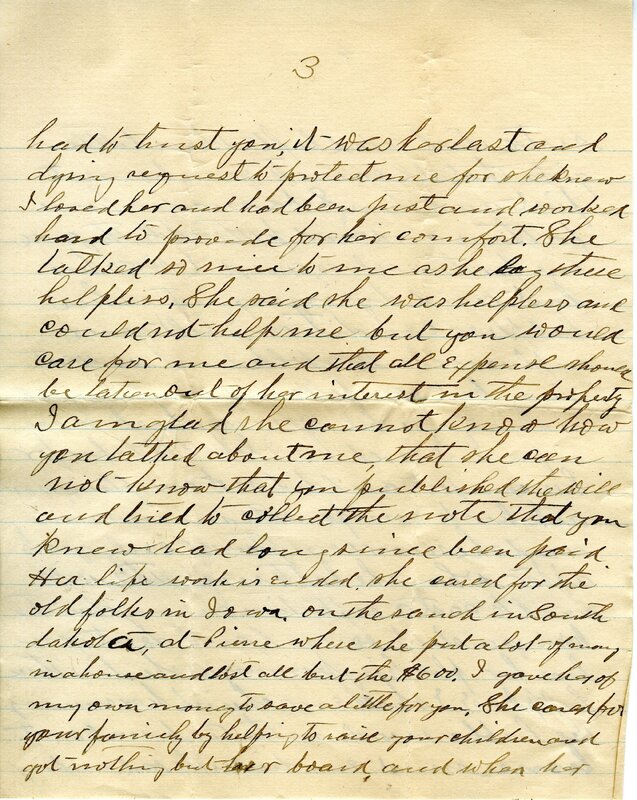 3
had to trust you, it was her last and
dying request to protect me for she knew
I loved her and had been just and worked
hard to provide for her comfort. She
talked so nice to me as she lay there
helpless. She said she was helpless and
could not help me but you would
care for me and that all expense should
be taken out of her interest in the property
I am glad she cannot know how
you talked about me, that she can
not know that you published the will
and tried to collect the note that you
knew had long since been paid.
Her life work is ended. she cared for the
old folks in Iowa. on the ranch in South
dakota, at Pierre where she put a lot of mony
in a house and lost all but the $600. I gave her of
my own money to save a little for you. She cared for
your family by helping to raise your children and
got nothing but her board, and when her